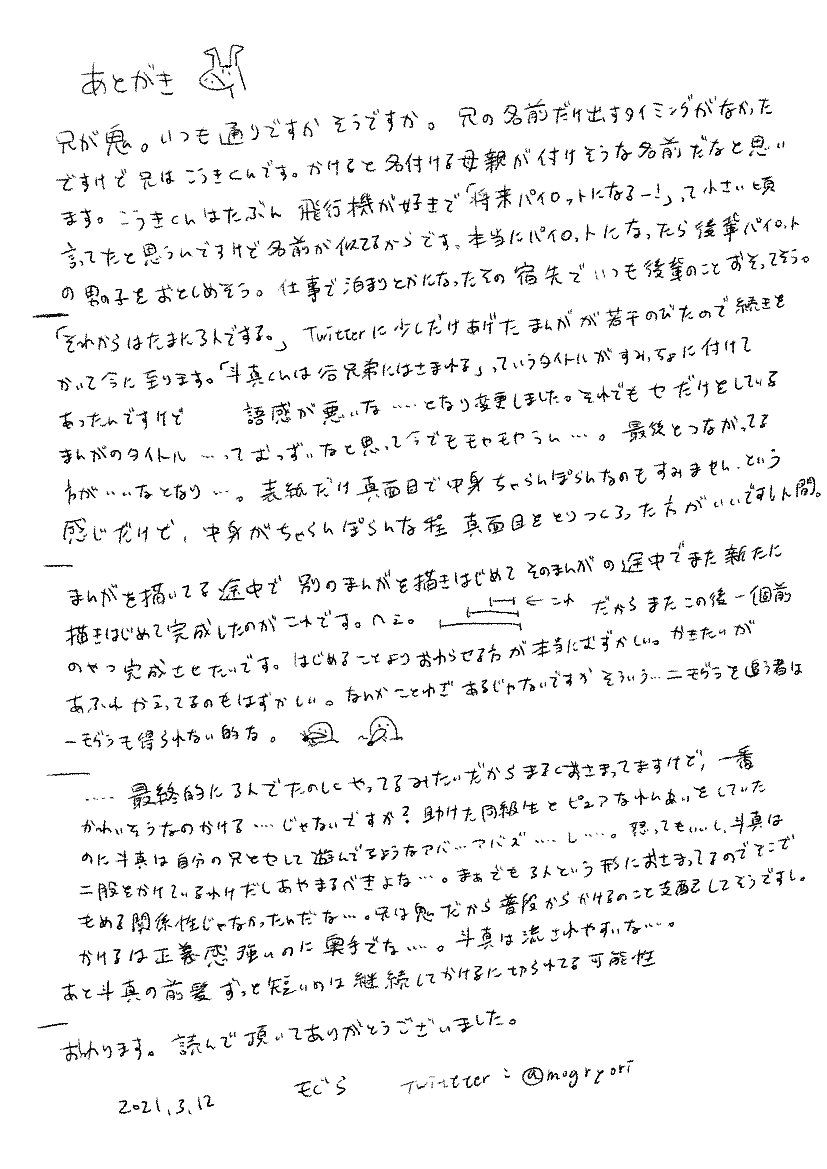 あとがき
兄が鬼。いつも通りですかそうですか。 兄の名前だけ出すタイミングがなかった
ですけど兄はこうきくんです。かけると名付ける母親が付けそうな名前だなと思い
ます。こうきくんはたぶん 飛行機が好きで「将来パイロットになるー!」って小さい頃
言ってたと思うんですけど名前が似てるからです、本当にパイロットになったら後輩パイロット
の男の子をおとしめそう。仕事で泊まりとかになったその宿先でいつも後輩のことおそってそう。
「それからはたまに3人でする。」 Twitterに少しだけあげたまんがが若干のびたので続きを
かいて今に至ります。「斗真くんは 兄弟にはさまれる」っていうタイトルがすみっちょに付けて
あったんですけど 語感が悪いな……となり変更しました。それでもセ だけどしている
まんがのタイトル …ってむっずいなと思って今でもモヤモヤうん…。 最後とつながってる
方がいいなとなり…。表紙だけ真面目で中身ちゃらんぽらんなのもすみません、という
感じだけど、中身がちゃらんぽらんな程 真面目をとりつくろった方がいいですし人間。
まんがを描いてる途中で 別のまんがを描きはじめて そのまんがの途中でまた新たに
描きはじめて完成したのがこれです。へえ。 ←これ だからまたこの後一個前
のやつ完成させたいです。はじめることよりおわらせる方が本当にむずかしい。かきたいが
あふれかえってるのもはずかしい。なんかことわざあるじゃないですかそういう…二モグラを追う者は
一モグラも得られない的な。
…… 最終的に3人でたのしくやってるみたいだからまるくおさまってますけど、一番
かわいそうなのかける…じゃないですか?助けた同級生とピュアなれんあいをしていた
のに斗真は自分の兄とセして遊んでるようなアバ…アバズ……し…。怒ってもいいし、斗真は
二股をかけているわけだしあやまるべきよな…。まぁでも3人という形におさまってるのでそこで
もめる関係性じゃなかったんだな…。兄は鬼だから普段からかけるのこと支配してそうですし。
かけるは正義感強いのに奥手でな…。斗真は流されやすいな…。
あと斗真の前髪ずっと短いのは継続してかけるに切られてる可能性
おわります。読んで頂いてありがとうございました。
2021,3,12 もぐら Twitter:@mogryori